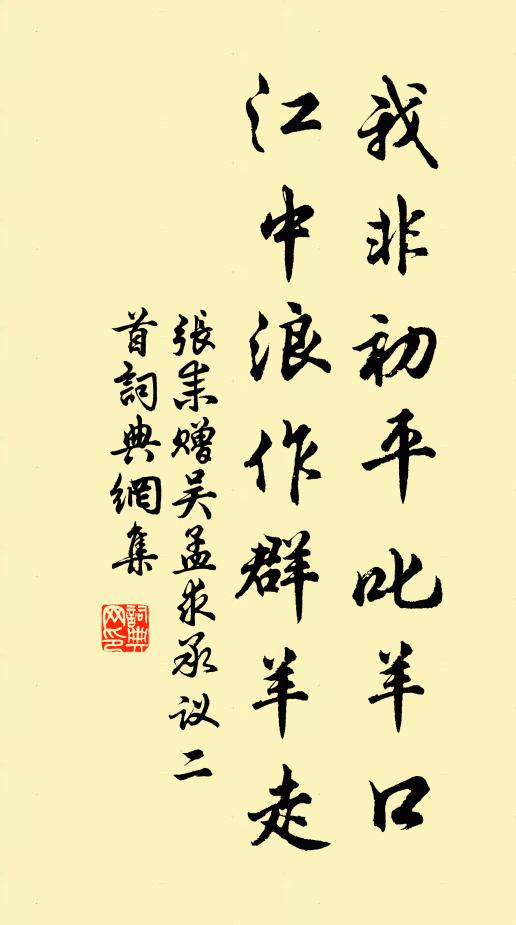 我非初平叱羊口
江中浪作群羊走
張耒赠吴孟求承议二
首詞典網集
詞典网印